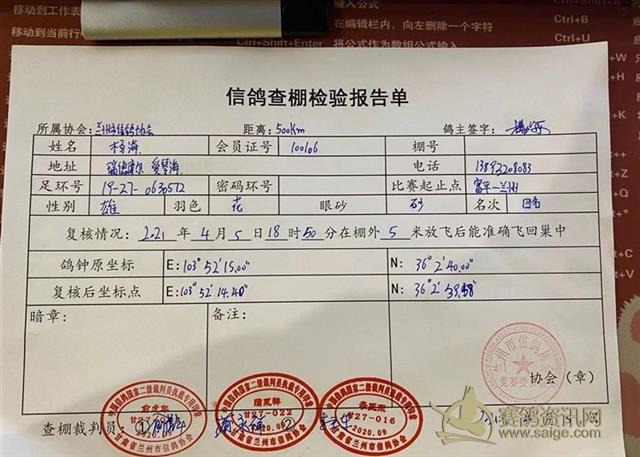 移动到工作表
移动到当前行
Ctrl+Shift+Enter
在编辑栏内，向左删除一个字符
将公式作为数组公式输入
Ctrl+B
Ctrl+U
信鸽查棚检验报告单
所属协会：兰州市信鸽协会 距离：500Km 鸽主签字：
姓名 杨海 会员证号 100106 棚号
地址 瑞德摩尔 爱琴海 电话 13893208083
足环号 19-27-0630572 密码环号 比赛起止点 富平—兰州
性别 雄 羽色 花 眼砂 砂 名次
复核情况：2021年4月5日18时50分在棚外5米放飞后能准确飞回巢中
鸽钟原坐标 E：103°52'15.00" N：36°2'40.00"
复核后坐标点 E：103°52'14.40" N：36°2'39.58"
暗章： 备注：
兰州市信鸽协会
竞赛委员会
协会（章）
中国信鸽协会国家二级裁判员执裁专用印章
2020.09
甘肃省兰州市信鸽协会
中国信鸽协会国家二级裁判员执裁专用印章
甘27-022
2020.09
甘肃省兰州市信鸽协会
中国信鸽协会国家二级裁判员执裁专用印章
甘27-016
2020.09
甘肃省兰州市信鸽协会
查棚裁判员：① ②
赛鸽资讯网
www.saige.com